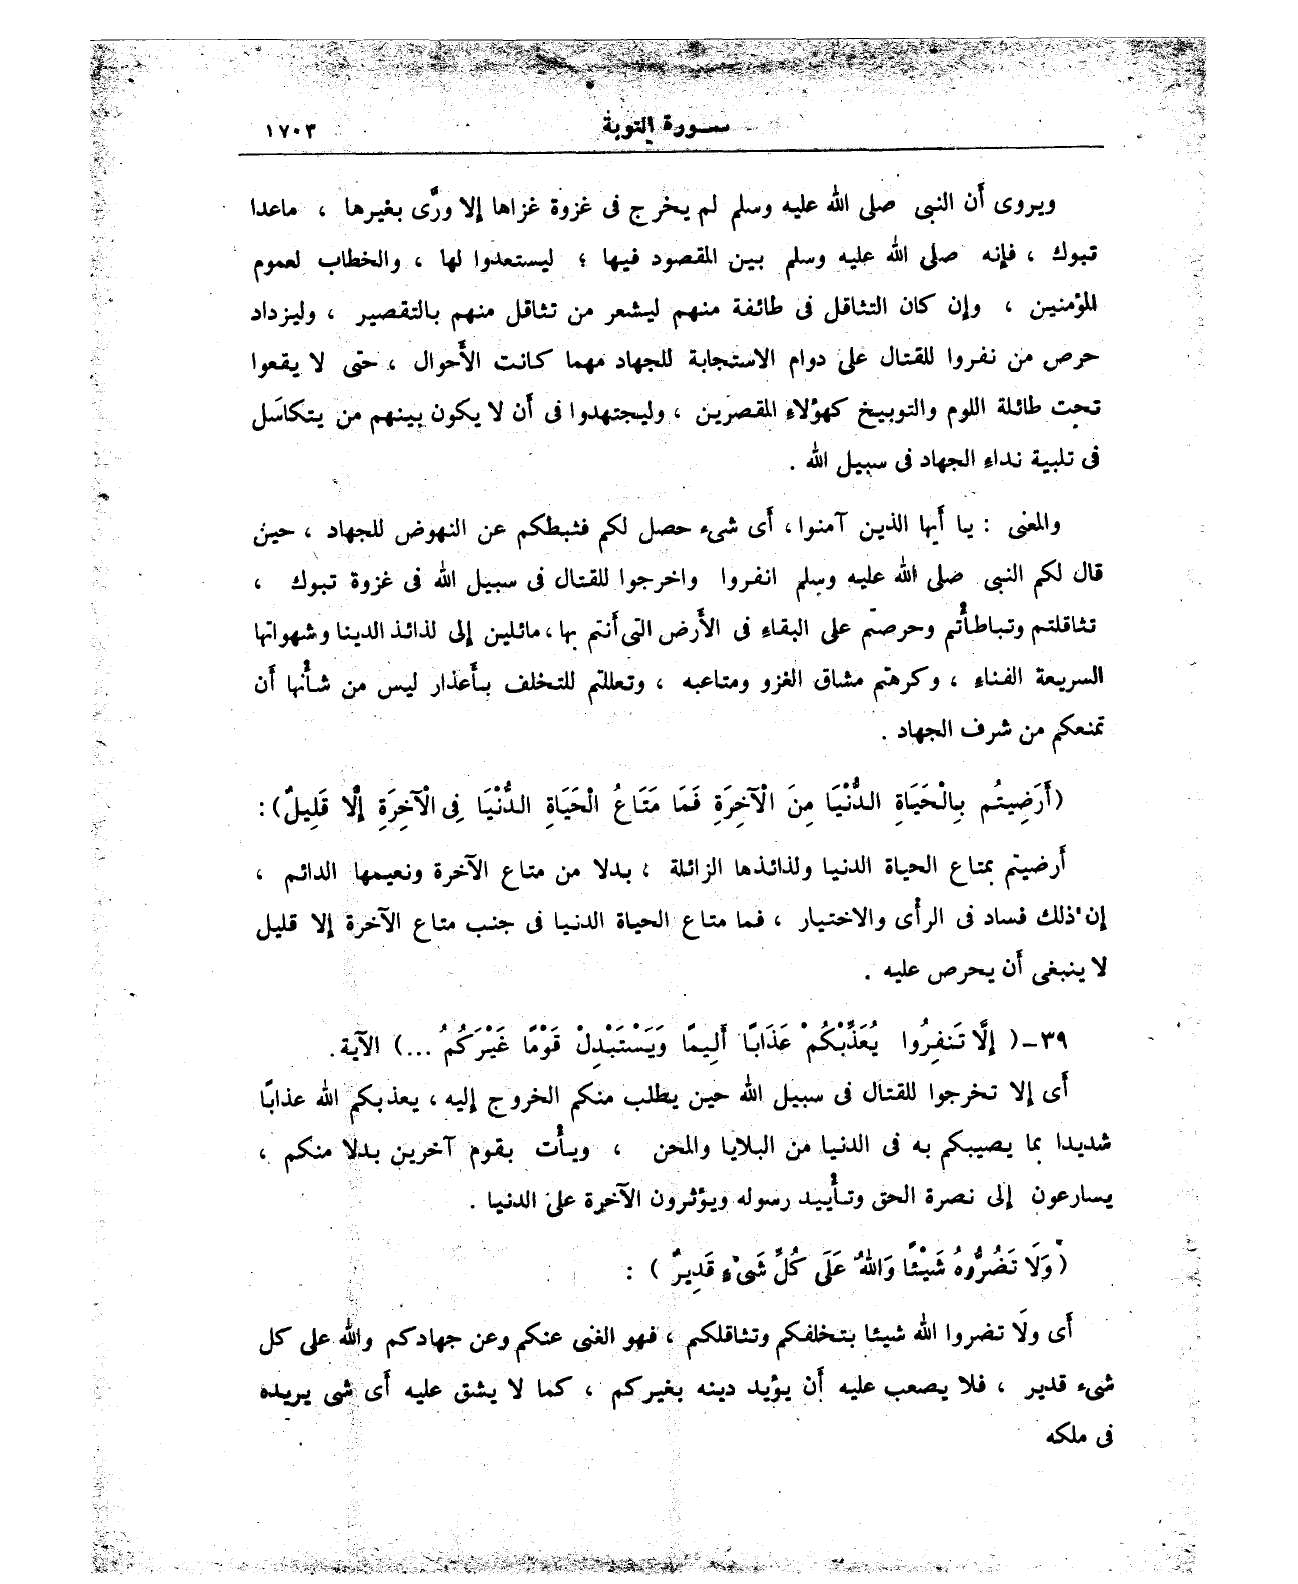 سورة التوبة ١٧٠٣
ويروى أن النبى صلى الله عليه وسلم لم يخرج فى غزوة غزاها إلا ورَّى بغيرها ، ماعدا
تبوك ، فإنه صلى الله عليه وسلم بين المقصود فيها ؛ ليستعدوا لها ، والخطاب لعموم
المؤمنين ، وإن كان التثاقل فى طائفة منهم ليشعر من تثاقل منهم بالتقصير ، وليزداد
حرص من نفروا للقتال على دوام الاستجابة للجهاد مهما كانت الأحوال ، حتى لا يقعوا
تحت طائلة اللوم والتوبيخ كهؤلاء المقصرين ، وليجتهدوا فى أن لا يكون بينهم من يتكاسَل
فى تلبية نداء الجهاد فى سبيل الله .
والمعنى : يا أيها الذين آمنوا، أى شىء حصل لكم فثبطكم عن النهوض للجهاد ، حين
قال لكم النبى صلى الله عليه وسلم انفروا واخرجوا للقتال فى سبيل الله فى غزوة تبوك ،
تثاقلتم وتباطأْتم وحرصتم على البقاء فى الأرض التى أنتم بها، مائلين إلى لذائذ الدينا وشهواتها
السريعة الفناء ، وكرهتم مشاق الغزو ومتاعبه ، وتعللتم للتخلف بأعذار ليس من شأْنها أن
تمنعكم من شرف الجهاد .
(أَرَضِيتُم بِالْحَيَاةِ الدُّنْيَا مِنَ الْآخِرَةِ فَمَا مَتَاعُ الْحَيَاةِ الدُّنْيَا فِى الْآخِرَةِ إِلَّا قَلِيلٌ) :
أرضيتم بمتاع الحياة الدنيا ولذائذها الزائلة ، بدلا من متاع الآخرة ونعيمها الدائم ،
إن ذلك فساد فى الرأْى والاختيار ، فما متاع الحياة الدنيا فى جنب متاع الآخرة إلا قليل
لا ينبغى أن يحرص عليه .
٣٩ـ( إِلَّا تَنفِرُوا يُعَذِّبْكُمْ عَذَابًا أَلِيمًا وَيَسْتَبْدِلْ قَوْمًا غَيْرَكُمْ ...) الآية .
أى إلا تخرجوا للقتال فى سبيل الله حين يطلب منكم الخروج إليه ، يعذبكم الله عذابًا
شديدا بما يصيبكم به فى الدنيا من البلايا والمحن ، ويأْت بقوم آخرين بدلا منكم ،
يسارعون إلى نصرة الحق وتأْييد رسوله ويؤثرون الآخرة على الدنيا .
( وَلَا تَضُرُّوهُ شَيْئًا وَاللهُ عَلَى كُلِّ شَىْءٍ قَدِيرٌ ) :
أى ولَا تضروا الله شيئا بتخلفكم وتثاقلكم ، فهو الغنى عنكم وعن جهادكم والله على كل
شىء قدير ، فلا يصعب عليه أن يؤيد دينه بغيركم ، كما لا يشق عليه أى شى يريده
فى ملكه